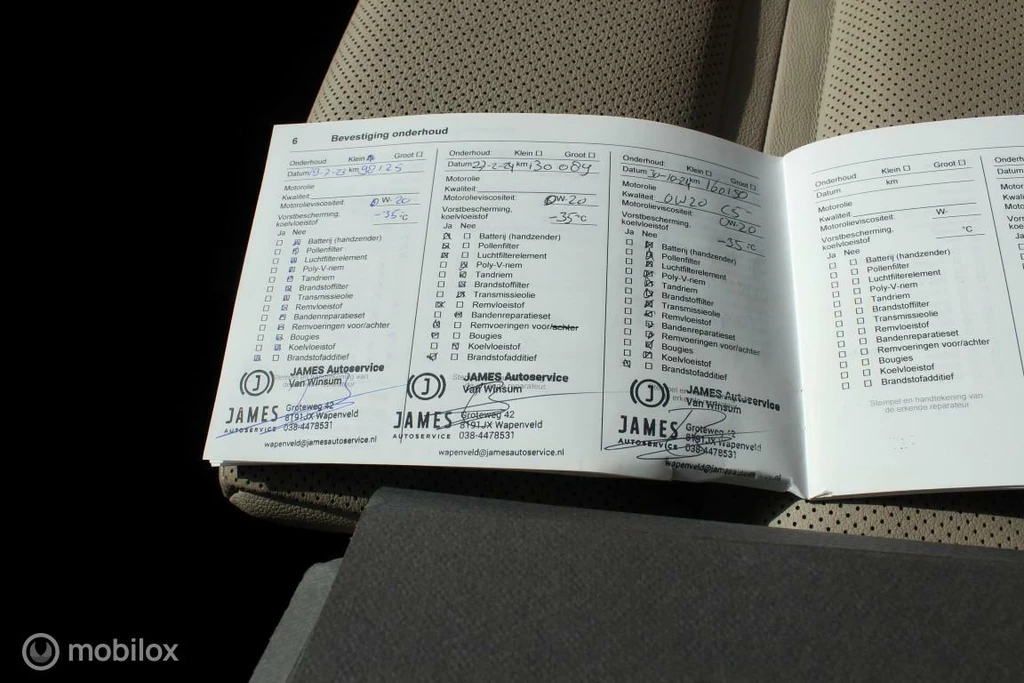 6 Bevestiging onderhoud
Onderhoud: Klein Groot
Datum 19-2-23 km 98125
Motorolie
Kwaliteit
Motorolieviscositeit 0 W- 20
Vorstbescherming, koelvloeistof -35 °C
Ja Nee
Batterij (handzender)
Pollenfilter
Luchtfilterelement
Poly-V-riem
Tandriem
Brandstoffilter
Transmissieolie
Remvloeistof
Bandenreparatieset
Remvoeringen voor/achter
Bougies
Koelvloeistof
Brandstofadditief
JAMES Autoservice
Van Winsum
J
JAMES
AUTOSERVICE
Groteweg 42
8191JX Wapenveld
038-4478531
wapenveld@jamesautoservice.nl
Onderhoud: Klein Groot
Datum 23-2-24 km 130 089
Motorolie
Kwaliteit
Motorolieviscositeit 0 W- 20
Vorstbescherming, koelvloeistof -35 °C
Ja Nee
Batterij (handzender)
Pollenfilter
Luchtfilterelement
Poly-V-riem
Tandriem
Brandstoffilter
Transmissieolie
Remvloeistof
Bandenreparatieset
Remvoeringen voor/achter
Bougies
Koelvloeistof
Brandstofadditief
JAMES Autoservice
Van Winsum
J
JAMES
AUTOSERVICE
Groteweg 42
8191JX Wapenveld
038-4478531
wapenveld@jamesautoservice.nl
Onderhoud: Klein Groot
Datum 30-10-24 km 160150
Motorolie
Kwaliteit 0W20 C5
Motorolieviscositeit 0W-20
Vorstbescherming, koelvloeistof -35 °C
Ja Nee
Batterij (handzender)
Pollenfilter
Luchtfilterelement
Poly-V-riem
Tandriem
Brandstoffilter
Transmissieolie
Remvloeistof
Bandenreparatieset
Remvoeringen voor/achter
Bougies
Koelvloeistof
Brandstofadditief
JAMES Autoservice
Van Winsum
J
JAMES
AUTOSERVICE
Groteweg 42
8191JX Wapenveld
038-4478531
wapenveld@jamesautoservice.nl
Onderhoud: Klein Groot
Datum km
Motorolie
Kwaliteit
Motorolieviscositeit W-
Vorstbescherming, koelvloeistof °C
Ja Nee
Batterij (handzender)
Pollenfilter
Luchtfilterelement
Poly-V-riem
Tandriem
Brandstoffilter
Transmissieolie
Remvloeistof
Bandenreparatieset
Remvoeringen voor/achter
Bougies
Koelvloeistof
Brandstofadditief
Stempel en handtekening van
de erkende reparateur
mobilox